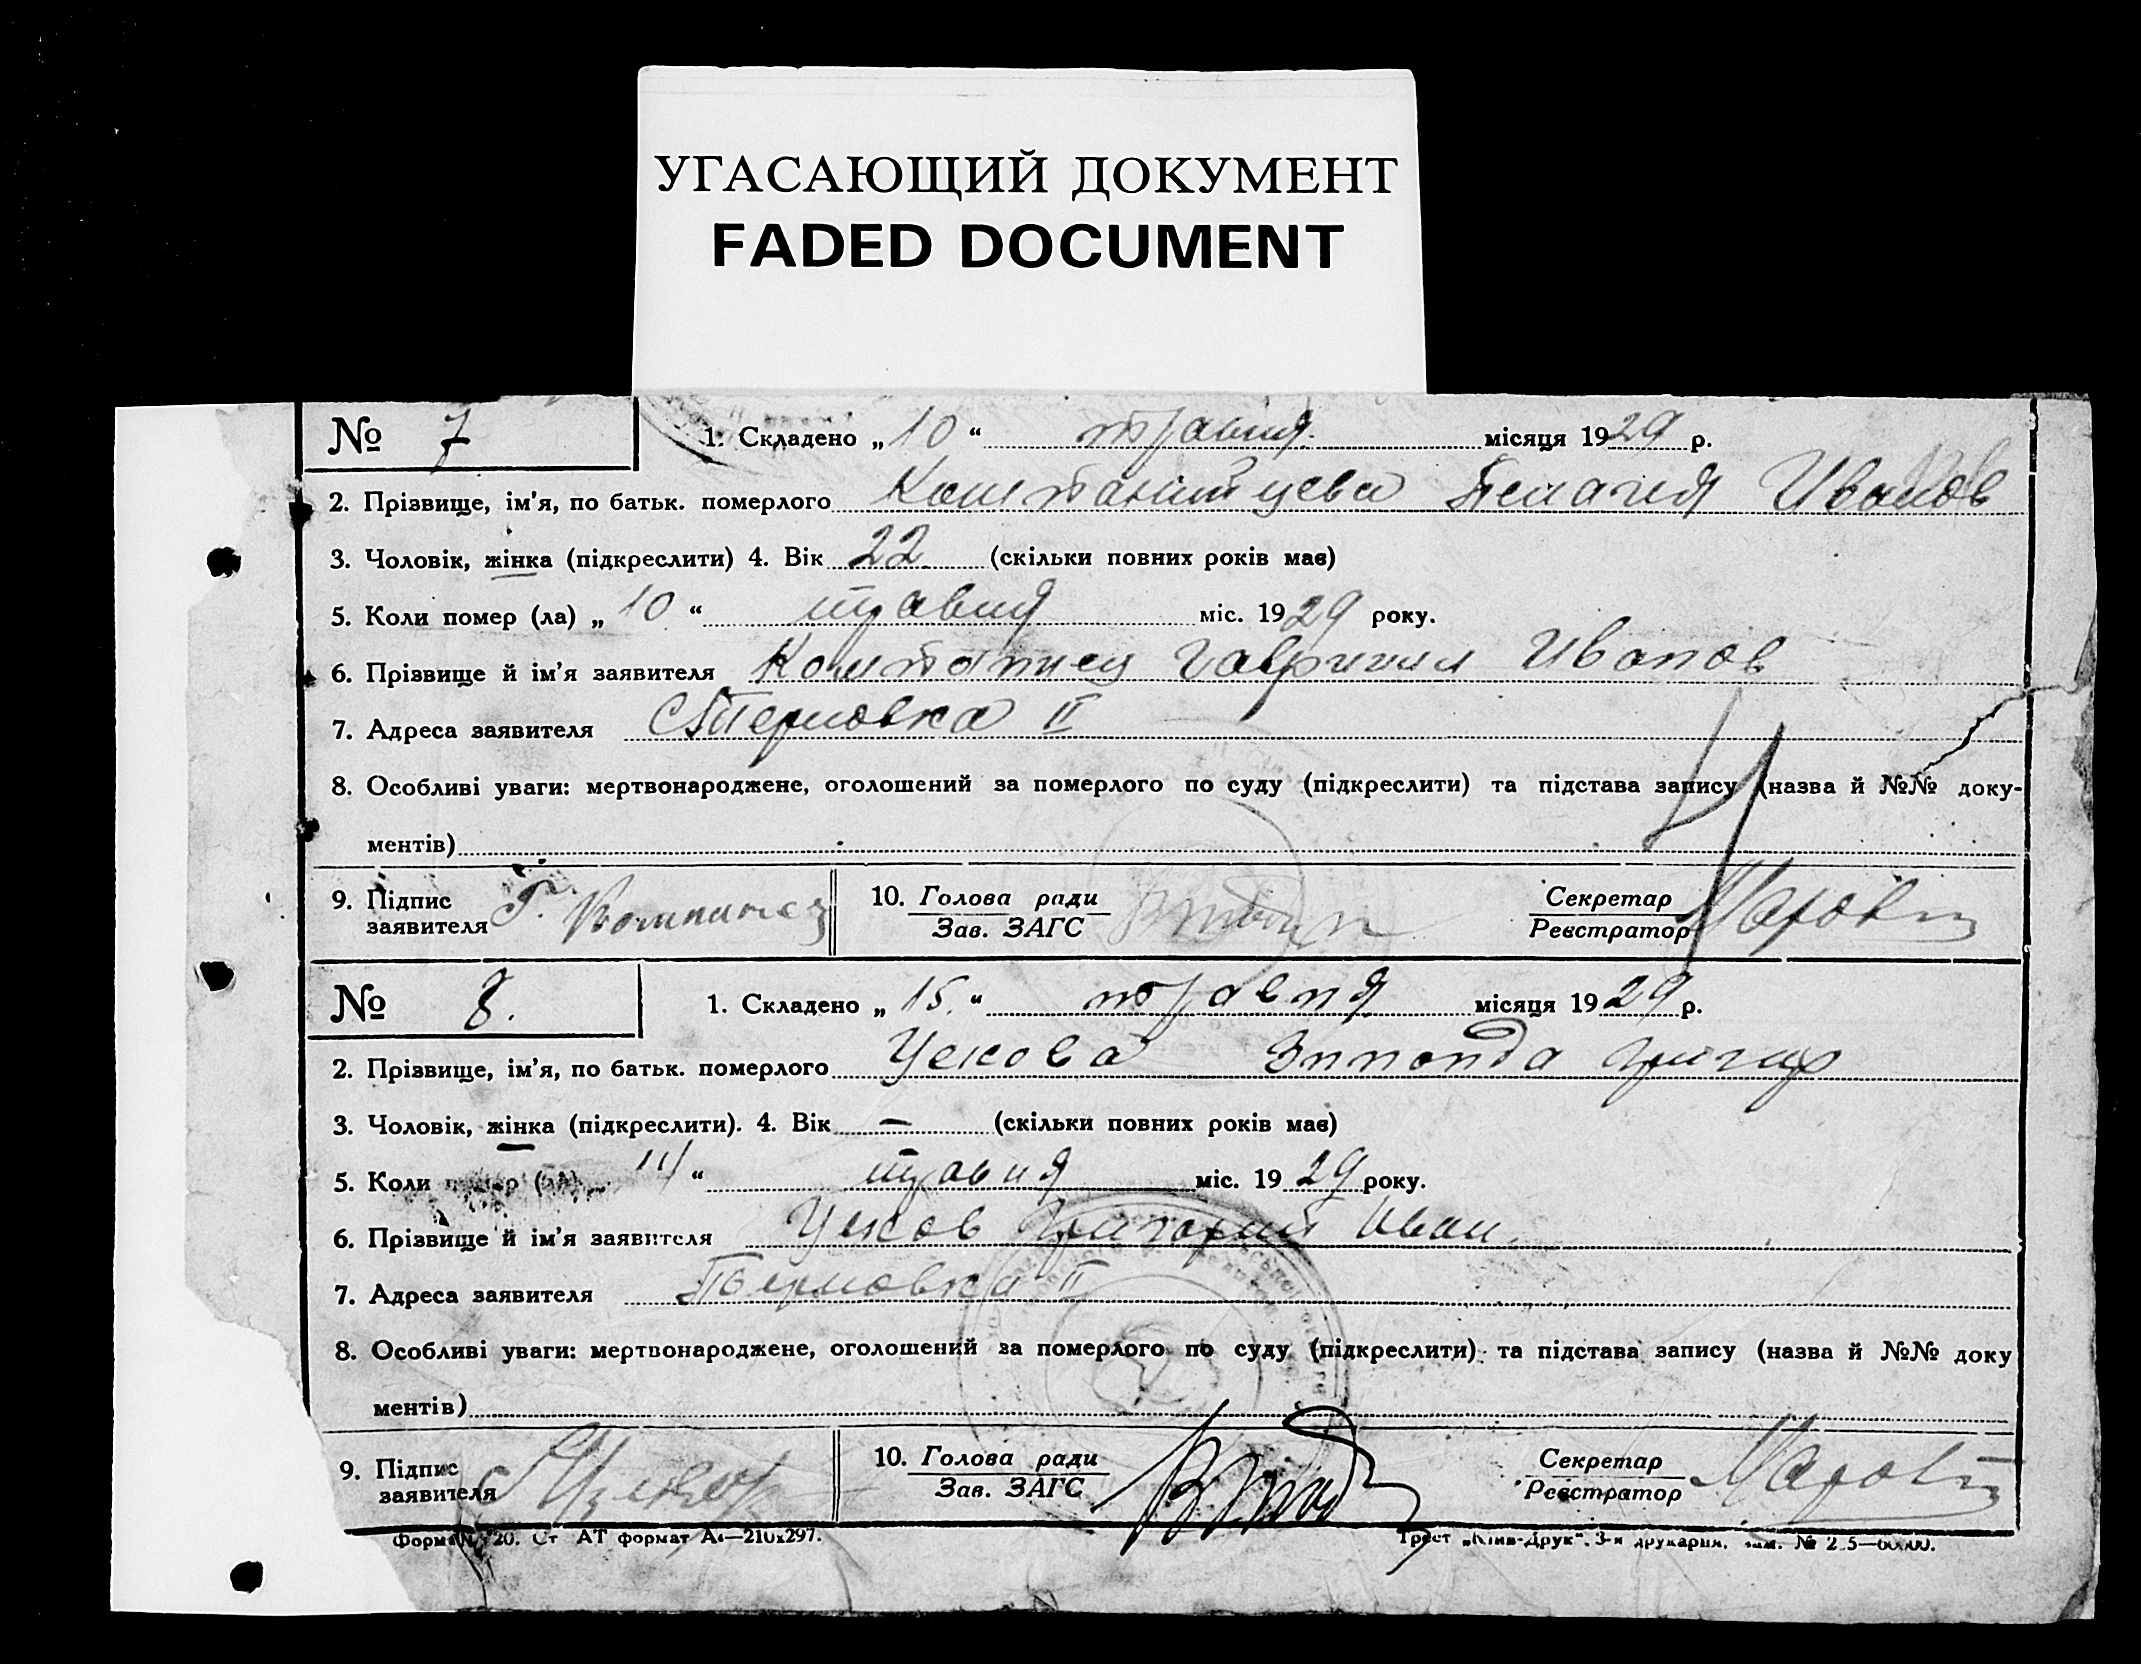 УГАСАЮЩИЙ ДОКУМЕНТ
FADED DOCUMENT
№ 7
1. Складено „10“ травня місяця 1929 р.
2. Прізвище, ім'я, по батьк. померлого Пелагия Иванов
3. Чоловік, жінка (підкреслити) 4. Вік 22 (скільки повних років має)
5. Коли помер (ла) „10“ травня міс. 1929 року.
6. Прізвище й ім'я заявителя Гавриил Иванов
7. Адреса заявителя Терновка II
8. Особливі уваги: мертвонароджене, оголошений за померлого по суду (підкреслити) та підстава запису (назва й №№ доку-
ментів)
9. Підпис заявителя Г.
10. Голова ради
Зав. ЗАГС
Секретар
Реєстратор
№ 8.
1. Складено „15.“ травня місяця 1929 р.
2. Прізвище, ім'я, по батьк. померлого Ускова Григор
3. Чоловік, жінка (підкреслити). 4. Вік — (скільки повних років має)
5. Коли 14“ травня міс. 1929 року.
6. Прізвище й ім'я заявителя Усков Григорий Иван
7. Адреса заявителя Терновка II
8. Особливі уваги: мертвонароджене, оголошений за померлого по суду (підкреслити) та підстава запису (назва й №№ доку
ментів)
9. Підпис заявителя
10. Голова ради
Зав. ЗАГС
Секретар
Реєстратор
Форма 20. Ст АТ формат А4—210х297.
Трест „Київ-Друк“. 3-я друкарня.